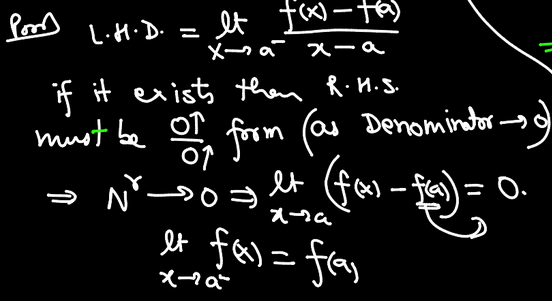 Proof L.H.D. = lt x→a⁻ (f(x) – f(a))/(x – a)
if it exists then R.H.S.
must be 0↑/0↑ form (as Denominator → 0)
⇒ Nʳ → 0 ⇒ lt x→a (f(x) – f(a)) = 0.
lt x→a⁻ f(x) = f(a)